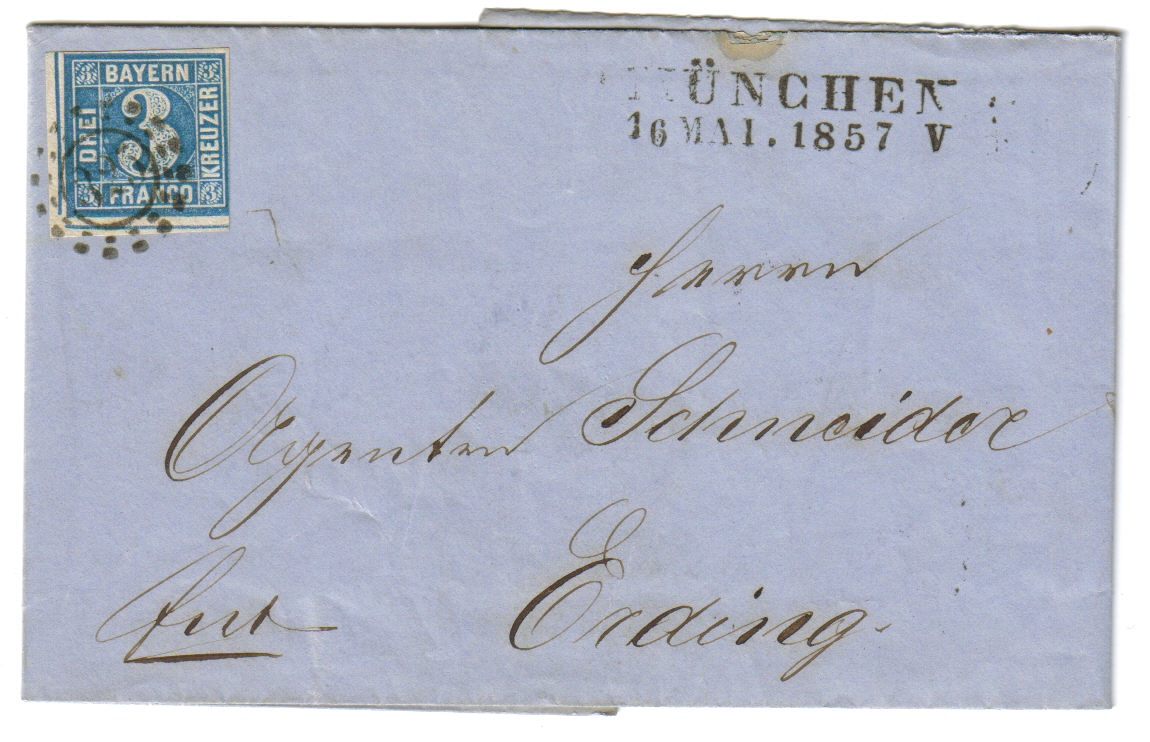 BAYERN
DREI
3
KREUZER
FRANCO
MÜNCHEN
16 MAI. 1857 V
Herrn
Agenten Schneider
Erding.